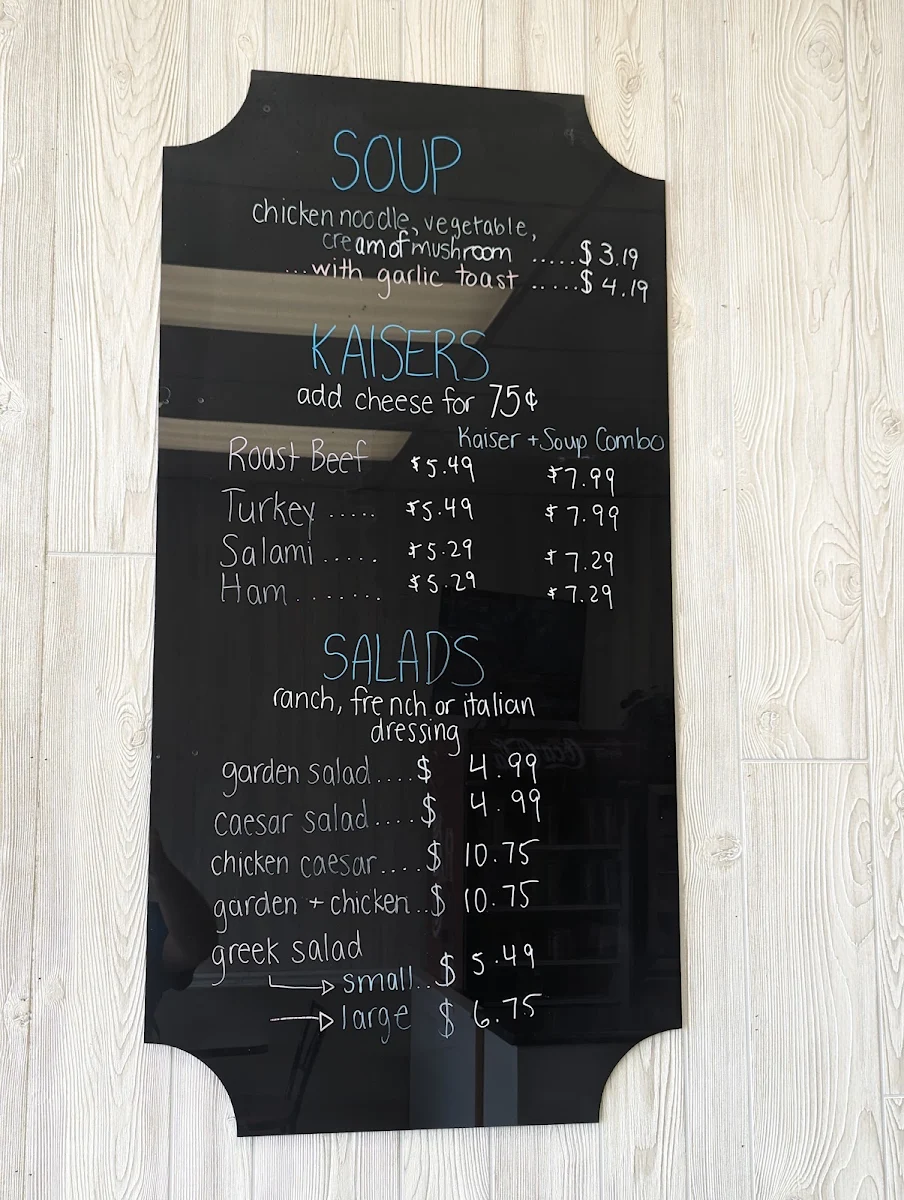 SOUP
chicken noodle, vegetable,
cream of mushroom .....$ 3.19
...with garlic toast .....$ 4.19
KAISERS
add cheese for 75¢
Kaiser + Soup Combo
Roast Beef $5.49 $7.99
Turkey ..... $5.49 $7.99
Salami ..... $5.29 $7.29
Ham ........ $5.29 $7.29
SALADS
ranch, french or italian
dressing
garden salad....$ 4.99
caesar salad....$ 4.99
chicken caesar....$ 10.75
garden + chicken..$ 10.75
greek salad
→ small..$ 5.49
→ large $ 6.75
Coca-Cola